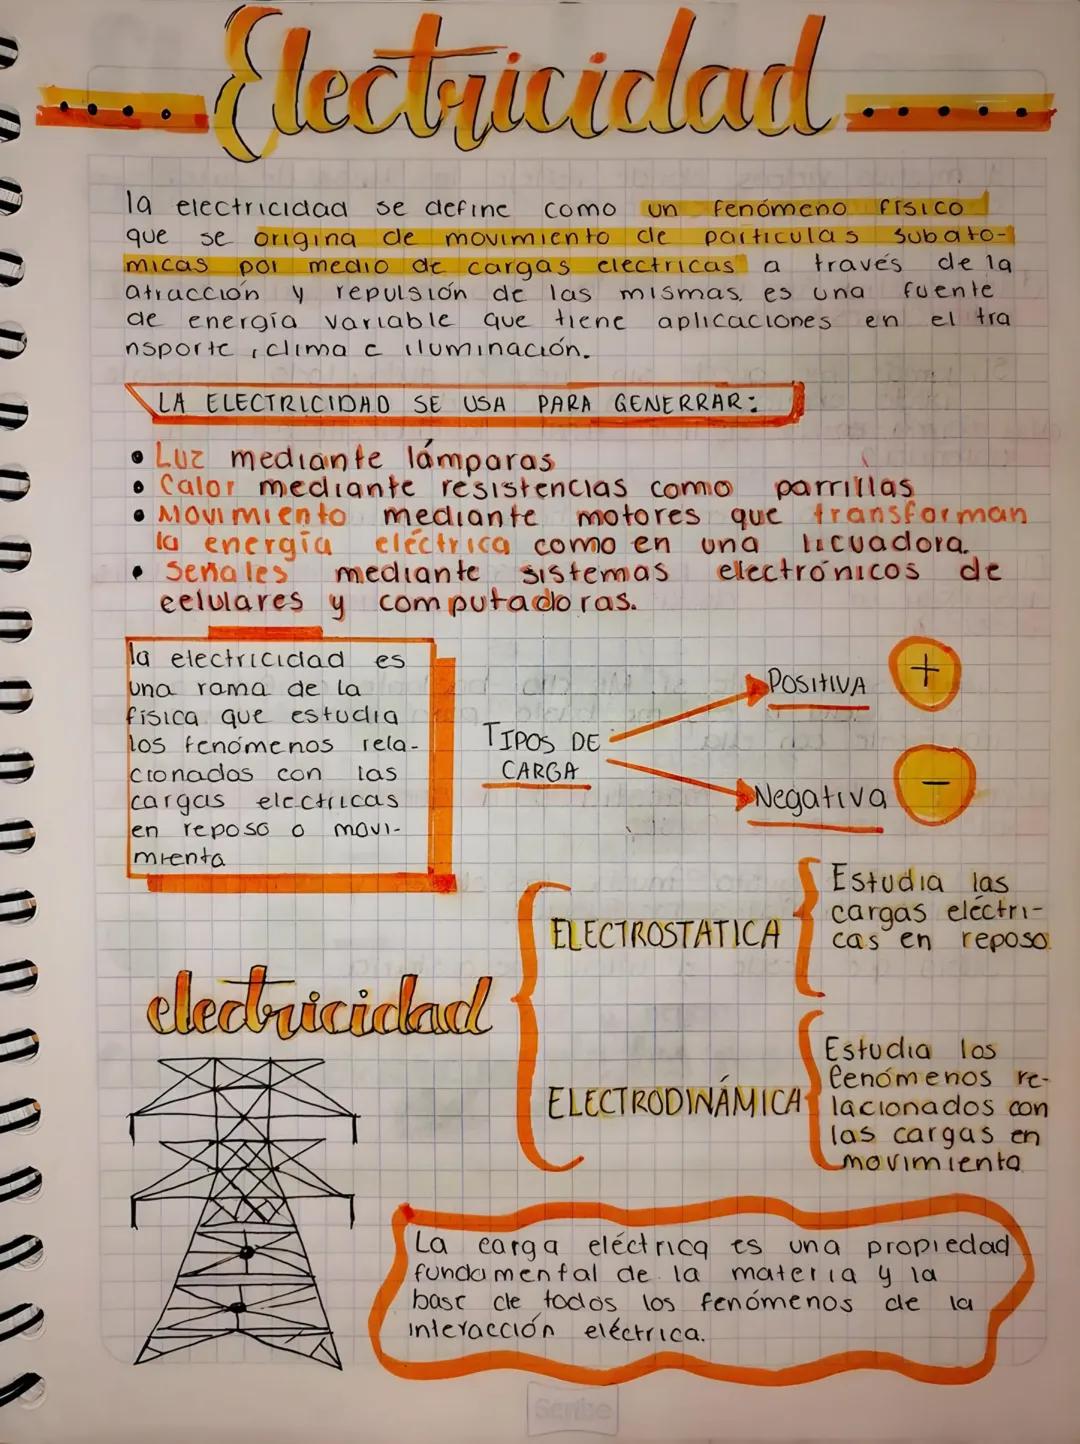 Electricidad
la electricidad se define como un fenómeno físico
que se origina de movimiento de particulas subato-
micas por medio de cargas electricas a través de la
atracción y repulsión de las mismas, es una fuente
de energía variable que tiene aplicaciones en el tra
nsporte, clima e iluminación.
LA ELECTRICIDAD SE USA PARA GENERRAR:
• Luz mediante lámparas
• Calor mediante resistencias como parrillas
• Movimiento mediante motores que transforman
la energía eléctrica como en una licuadora.
• Señales mediante sistemas electrónicos de
celulares y computadoras.
la electricidad es
una rama de la
física que estudia
los fenómenos rela-
cionados con las
cargas electricas
en reposo o movi-
mienta
TIPOS DE
CARGA
POSITIVA
+
Negativa
-
electricidad
ELECTROSTATICA
Estudia las
cargas eléctri-
cas en reposo
ELECTRODINÁMICA
Estudia los
fenómenos re-
lacionados con
las cargas en
movimiento
La carga eléctrica es una propiedad
fundamental de la materia y la
base de todos los fenómenos de la
interacción eléctrica.
Scribe